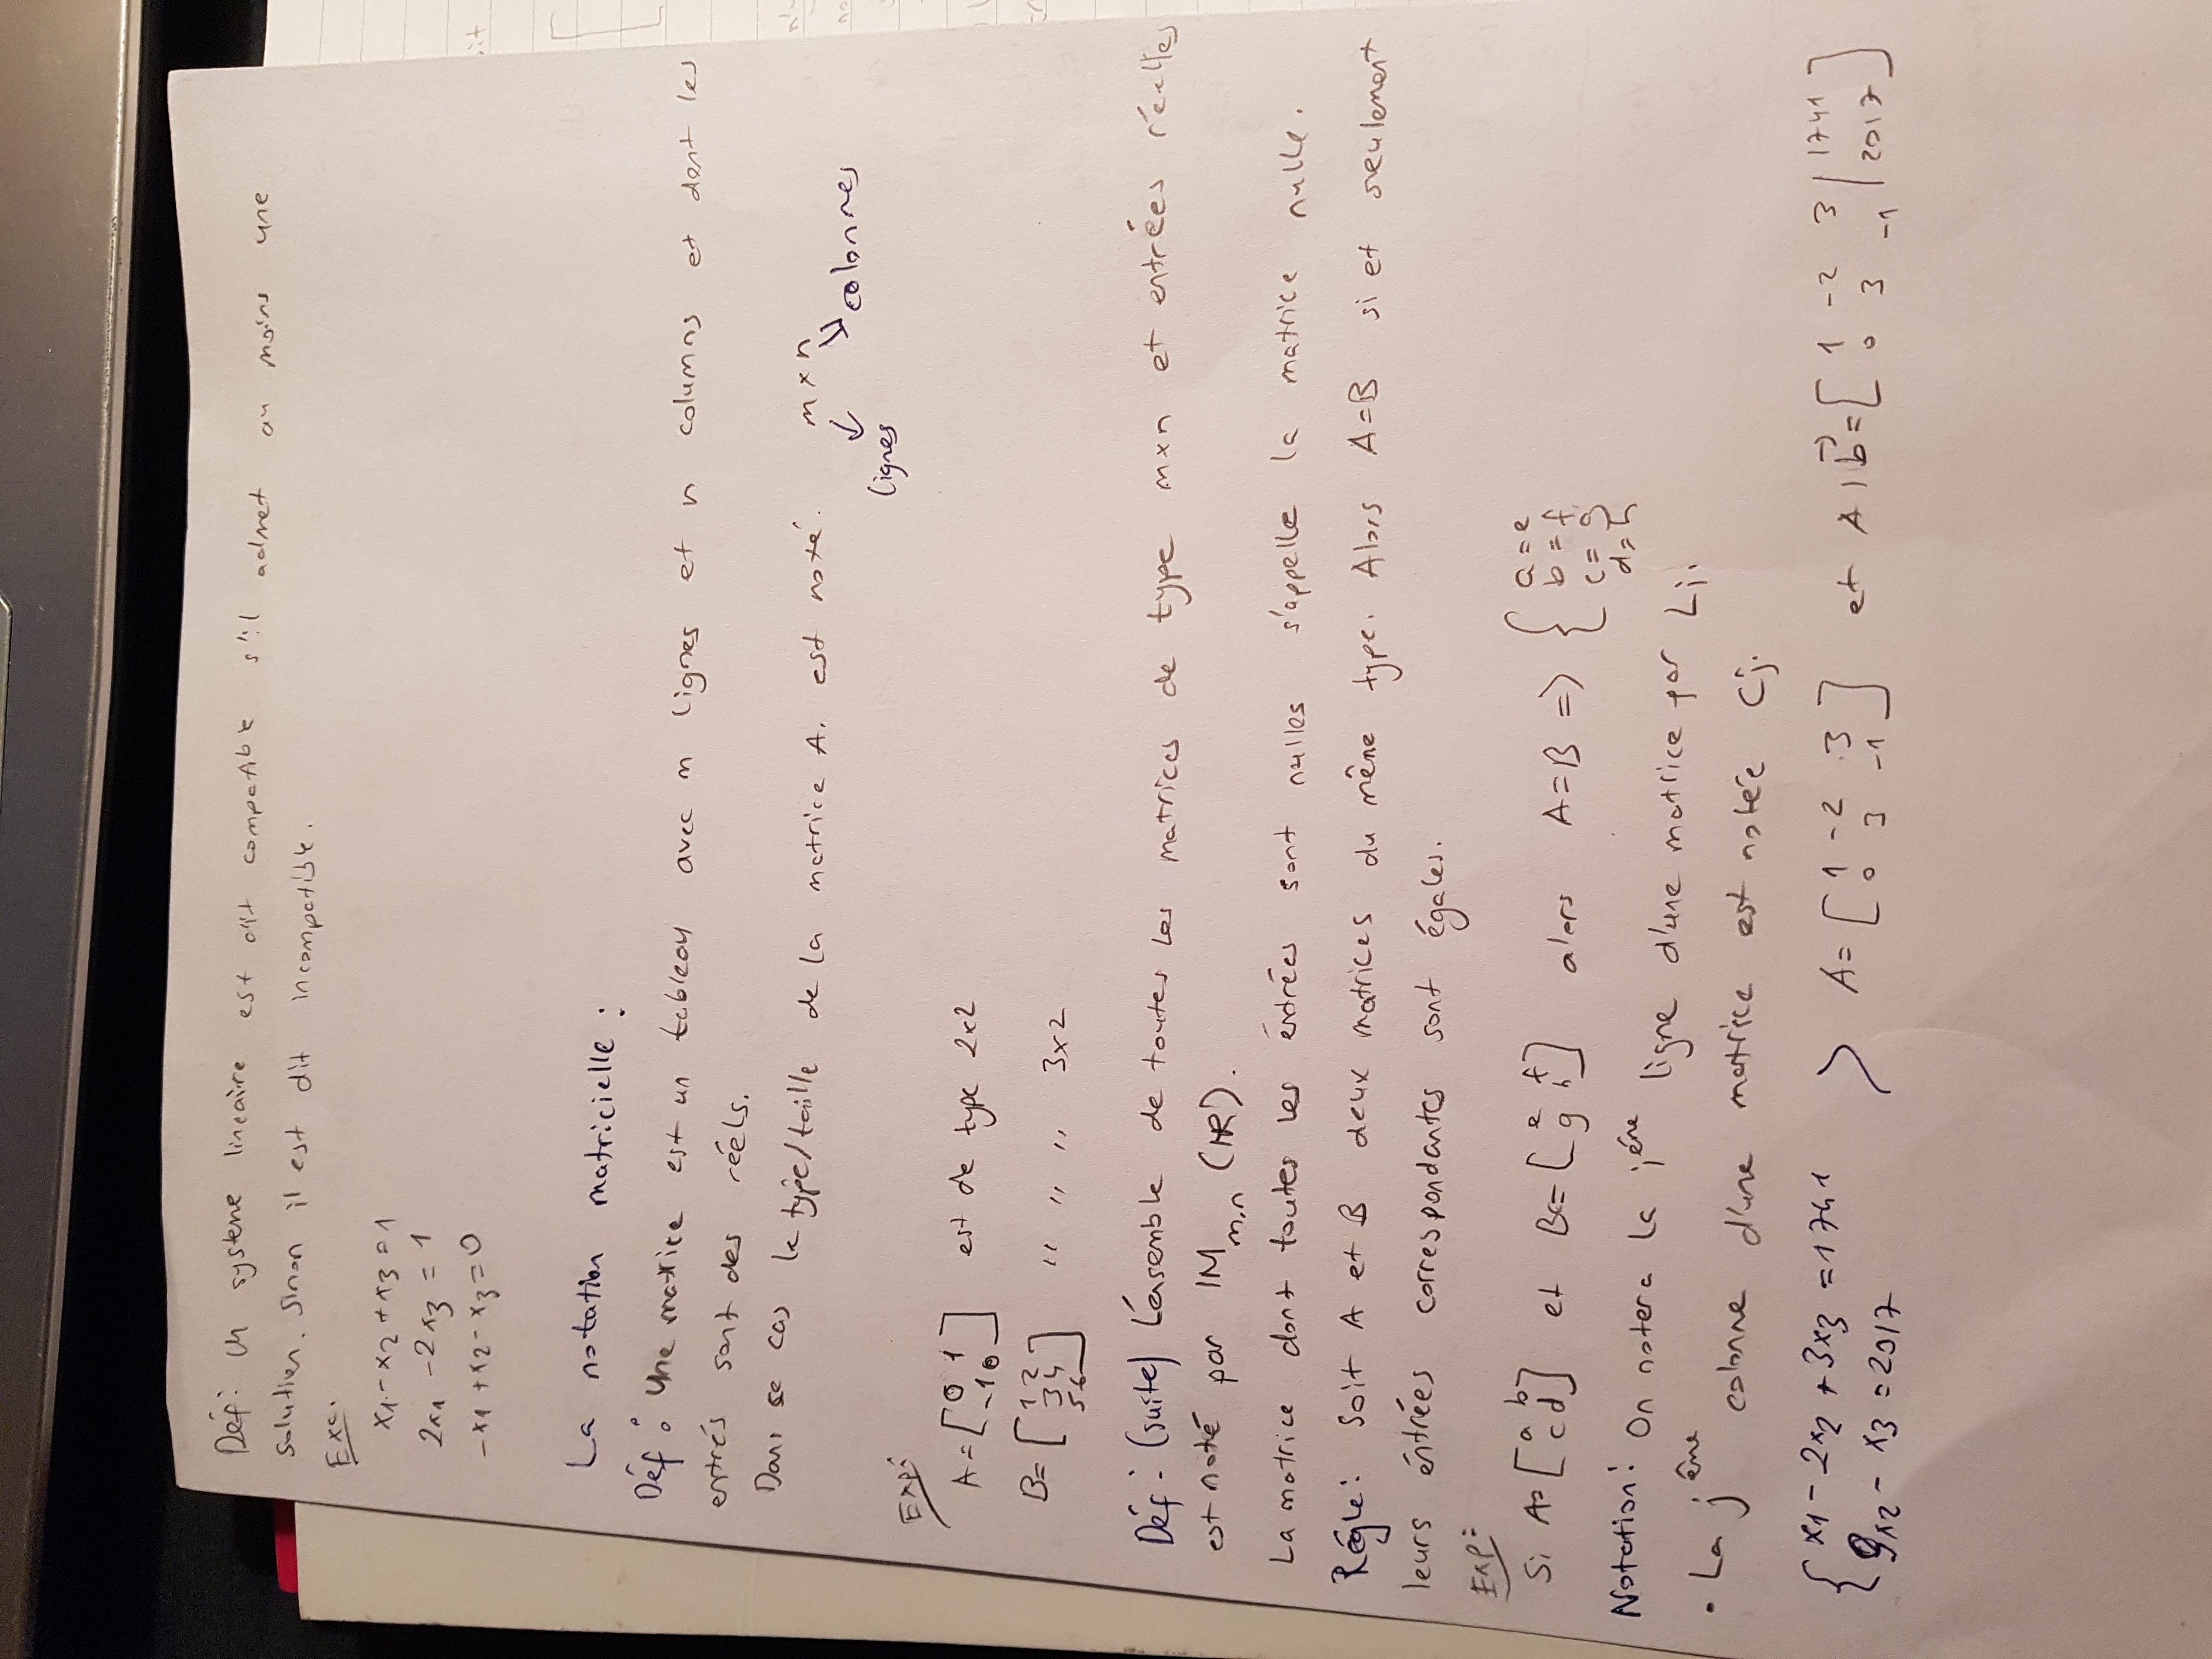 Déf: Un systeme lineaire est dit compatible s'il admet au moins une
solution. Sinon il est dit incompatible.
Exe:
x1 - x2 + x3 = 1
2x1 - 2x3 = 1
-x1 + x2 - x3 = 0
La notation matricielle :
Déf : Une matrice est un tableau avec m lignes et n columns et dont les
entrés sont des réels.
Dans se cas le type/taille de la matrice A. est noté. m x n
lignes colonnes
Exp:
A = [0 1
-1 0] est de type 2x2
B = [1 2
3 4
5 6] " " " 3x2
Déf: (suite) L'ensemble de toutes les matrices de type mxn et entrées réelles
est noté par IM m,n (IR).
La matrice dont toutes les entrées sont nulles s'appelle la matrice nulle.
Régle: Soit A et B deux matrices du même type. Alors A=B si et seulement
leurs éntrées correspondantes sont égales.
Exp:
Si A= [a b
c d] et B= [e f
g h] alors A=B => { a=e
b=f
c=g
d=h
Notation: On notera la iéne ligne d'une matrice par Li.
• La j éne colonne d'une matrice est notée Cj.
{ x1 - 2x2 + 3x3 = 1741
x2 - x3 = 2017 > A = [1 -2 3
0 3 -1] et A|b = [1 -2 3 | 1741
0 3 -1 | 2017]